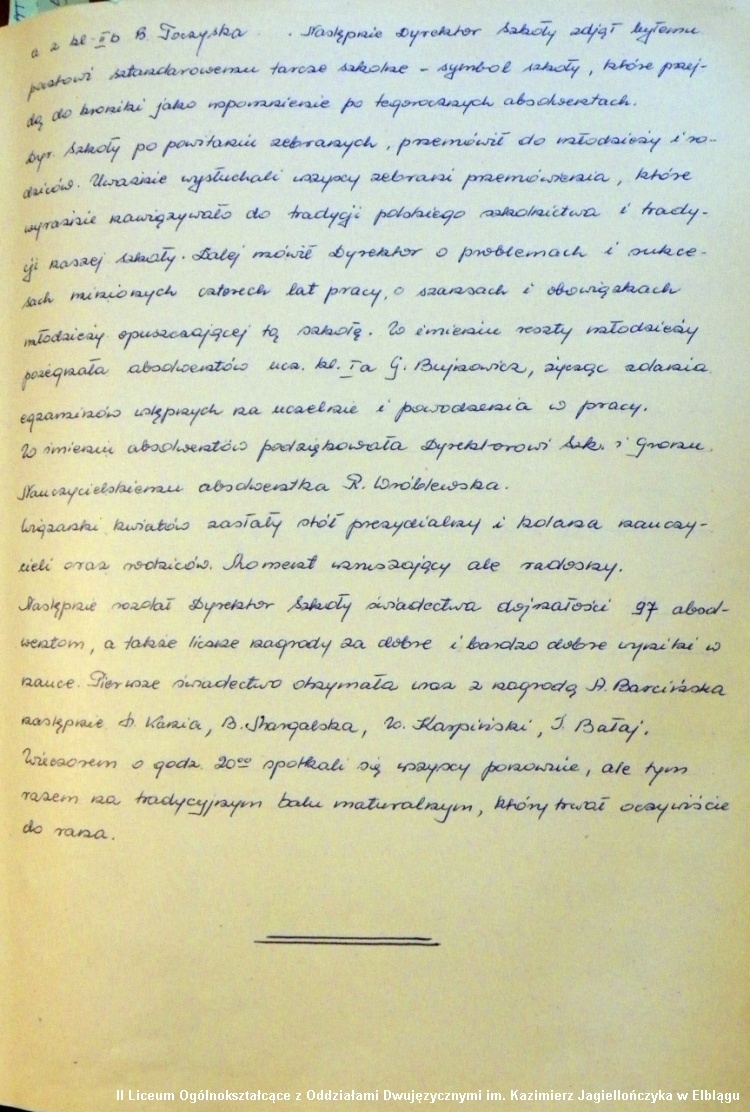 a z kl. IIb B. Toczyska . . Następnie Dyrektor Szkoły zdjął byłemu
pocztowi sztandarowemu tarcze szkolne - symbol szkoły, które przej-
dą do kroniki jako wspomnienie po tegorocznych absolwentach.
Dyr. Szkoły po powitaniu zebranych, przemówił do młodzieży i ro-
dziców. Uważnie wysłuchali wszyscy zebrani przemówienia, które
wyraźnie nawiązywało do tradycji polskiego szkolnictwa i trady-
cji naszej szkoły. Dalej mówił Dyrektor o problemach i sukce-
sach minionych czterech lat pracy, o szansach i obowiązkach
młodzieży opuszczającej tą szkołę. W imieniu reszty młodzieży
pożegnała absolwentów ucz. kl. Ia G. Bujnowicz, życząc zdania
egzaminów wstępnych na uczelnie i powodzenia w pracy.
W imieniu absolwentów podziękowała Dyrektorowi Szk. i Gronu
Nauczycielskiemu absolwentka R. Wróblewska.
Wiązanki kwiatów zasłały stół prezydialny i kolana nauczy-
cieli oraz rodziców. Moment wzruszający ale radosny.
Następnie rozdał Dyrektor Szkoły świadectwa dojrzałości 97 absol-
wentom, a także liczne nagrody za dobre i bardzo dobre wyniki w
nauce. Pierwsze świadectwo otrzymała wraz z nagrodą A. Barcińska
następnie D. Kania, B. Margalska, W. Karpiński, J. Bałaj.
Wieczorem o godz. 20⁰⁰ spotkali się wszyscy ponownie, ale tym
razem na tradycyjnym balu maturalnym, który trwał oczywiście
do rana.
II Liceum Ogólnokształcące z Oddziałami Dwujęzycznymi im. Kazimierz Jagiellończyka w Elblągu